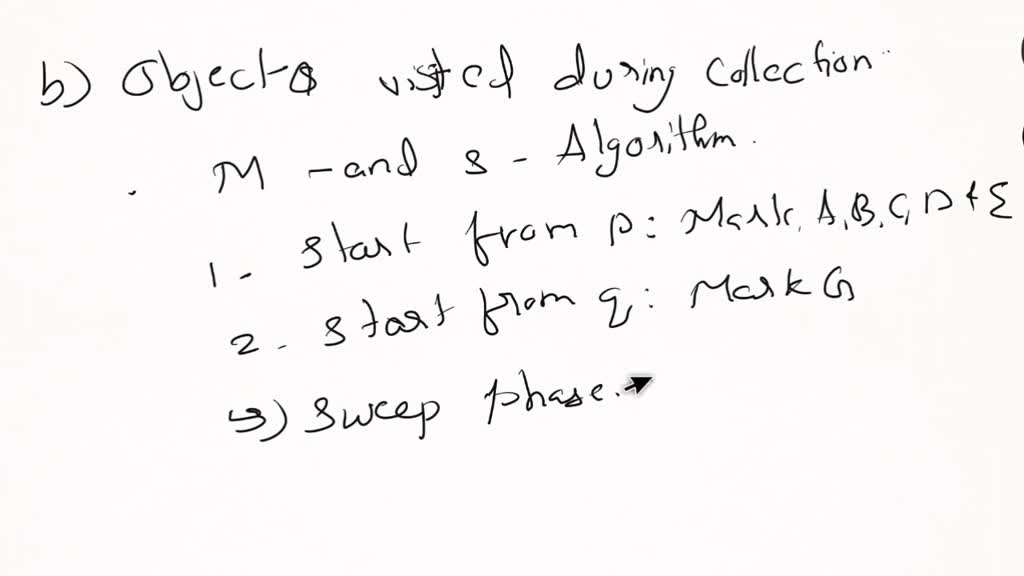 b) Objects visited during collection
M - and s - Algorithm.
1 - start from p: Mark, A, B, C, D & E
2 - start from q: Mark G
3) Sweep phase.